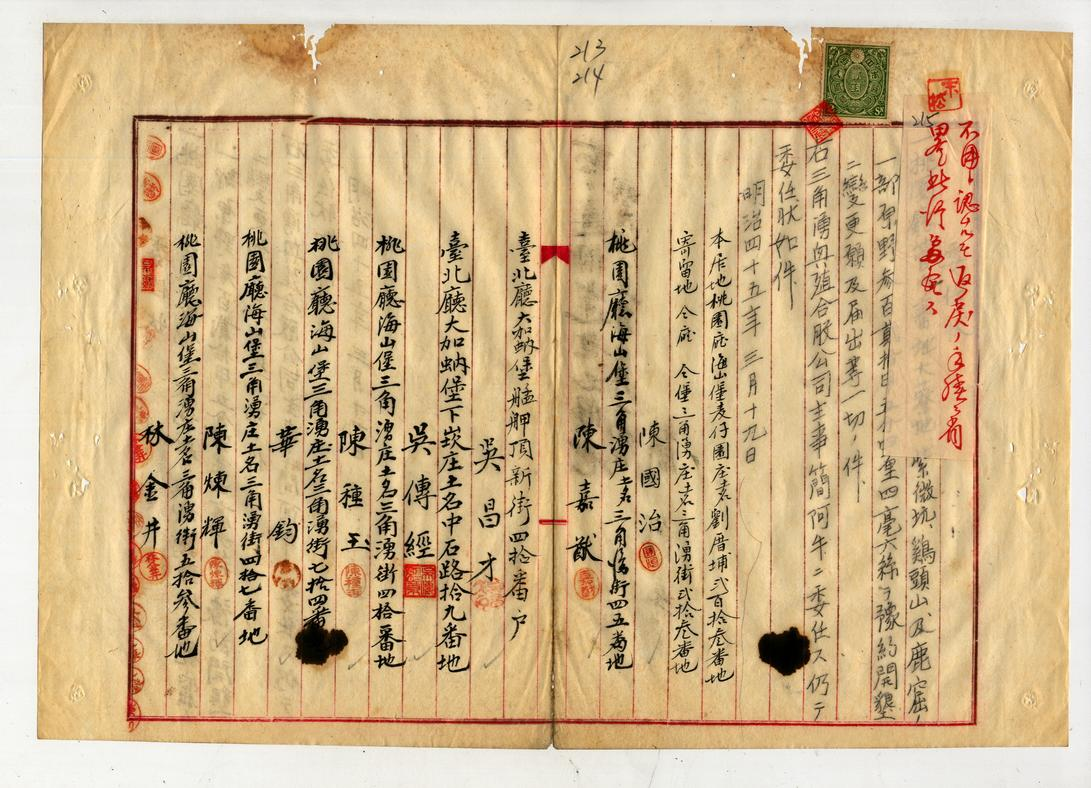 213
214
215
紫微坑、鷄頭山、及鹿窟ノ
一部原野參百
四毫六絲ヲ豫約開墾
變更願及届出等一切ノ件、
右三角湧興殖合股公司主事簡阿牛ニ委任ス仍テ
委任狀如件
明治四十五年三月十九日
本居地桃園廳海山堡麦仔園庄土名劉厝埔弐百拾叁番地
寄留地仝廳仝堡三角湧庄土名三角湧街弐拾叁番地
陳國治
桃園廳海山堡三角湧庄土名三角湧街四五番地
陳嘉猷
臺北廳大加蚋堡艋舺頂新街四拾番户
吳昌才
臺北廳大加蚋堡下崁庄土名中石路拾九番地
吳傳經
桃園廳海山堡三角湧庄土名三角湧街四拾番地
陳種玉
桃園廳海山堡三角湧庄土名三角湧街七拾四番
華鈞
桃園廳海山堡三角湧庄土名三角湧街四拾七番地
陳煉輝
桃園廳海山堡三角湧庄土名三角湧街五拾參番地
林金井